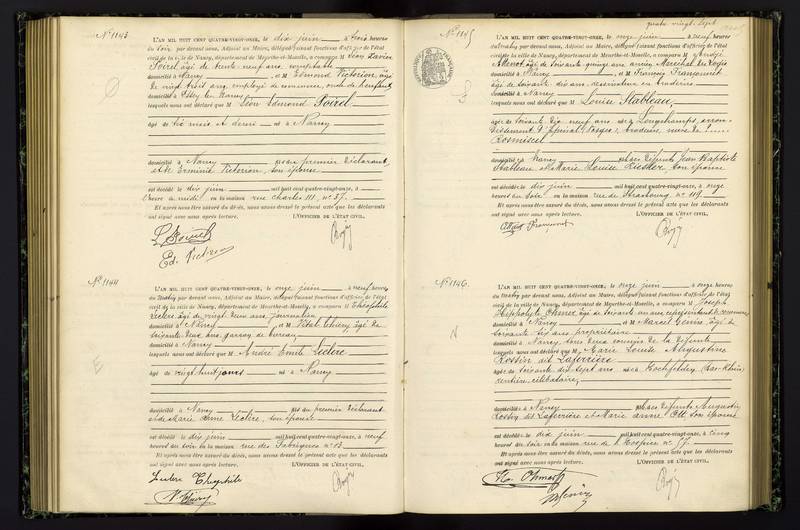 N° 1143
L'AN MIL HUIT CENT QUATRE-VINGT-ONZE, le dix juin à trois heures
du soir par devant nous, Adjoint au Maire, délégué faisant fonctions d'officier de l'état
civil de la ville de Nancy, département de Meurthe-et-Moselle, a comparu M
Poirel âgé de trente neuf ans, comptable
domicilié à Nancy et M Edmond Victorion, âgé
de vingt ans, employé de commerce, oncle de l'enfant
domicilié à Nancy
lesquels nous ont déclaré que M Léon Edmond Poirel
âgé de six mois et demi né à Nancy
domicilié à Nancy fils du premier déclarant
et de Erminie Victorion, son épouse
est décédé le dix juin mil huit cent quatre-vingt-onze, à
heure à midi en la maison rue Charles III, n° 57.
Et après nous être assuré du décès, nous avons dressé le présent acte que les déclarants
ont signé avec nous après lecture. L'OFFICIER DE L'ÉTAT CIVIL,
L. Poirel
Ed. Victorion
N° 1144
L'AN MIL HUIT CENT QUATRE-VINGT-ONZE, le onze juin à neuf heures
du matin par devant nous, Adjoint au Maire, délégué faisant fonctions d'officier de l'état
civil de la ville de Nancy, département de Meurthe-et-Moselle, a comparu M Théophile
Leclère âgé de vingt deux ans, journalier
domicilié à Nancy et M Vital Thiéry, âgé de
soixante deux ans, garçon de bureau
domicilié à Nancy
lesquels nous ont déclaré que M André Emile Leclère
âgé de vingt huit jours né à Nancy
domicilié à Nancy fils du premier déclarant
et de Marie Anne Leclère, son épouse
est décédé le dix juin mil huit cent quatre-vingt-onze, à neuf
heures du soir en la maison rue des Fabriques n° 13
Et après nous être assuré du décès, nous avons dressé le présent acte que les déclarants
ont signé avec nous après lecture. L'OFFICIER DE L'ÉTAT CIVIL,
Leclere Théophile
V. Thiéry
quatre vingt sept
N° 1145
L'AN MIL HUIT CENT QUATRE-VINGT-ONZE, le onze juin à neuf heures
du matin par devant nous, Adjoint au Maire, délégué faisant fonctions d'officier de l'état
civil de la ville de Nancy, département de Meurthe-et-Moselle, a comparu M
âgé de soixante quinze ans, ancien Maréchal des Logis
domicilié à Nancy et M François Françonnet
âgé de soixante dix ans, dessinateur en broderies
domicilié à Nancy
lesquels nous ont déclaré que M Louise Stableau,
âgée de soixante dix neuf ans née à Longchamps, arron-
dissement d'Epinal (Vosges), brodeuse, veuve de
domiciliée à Nancy fille des défunts Jean Baptiste
Stableau et Marie Louise son épouse
est décédée le dix juin mil huit cent quatre-vingt-onze, à onze
heures du soir en la maison rue de Strasbourg, n° 119
Et après nous être assuré du décès, nous avons dressé le présent acte que les déclarants
ont signé avec nous après lecture. L'OFFICIER DE L'ÉTAT CIVIL,
N° 1146.
L'AN MIL HUIT CENT QUATRE-VINGT-ONZE, le onze juin à onze heures
du matin par devant nous, Adjoint au Maire, délégué faisant fonctions d'officier de l'état
civil de la ville de Nancy, département de Meurthe-et-Moselle, a comparu M Joseph
Hippolyte âgé de soixante un ans, représentant de commerce
domicilié à Nancy et M Marcel Genin âgé de
soixante six ans, propriétaire
domicilié à Nancy, tous deux cousins de la défunte
lesquels nous ont déclaré que M Marie Louise Augustine
Rossin dit Laferrière
âgée de soixante dix sept ans née à Hochfelden (Bas-Rhin)
rentière, célibataire,
domiciliée à Nancy fille des défunts Augustin
Rossin dit Laferrière et Marie Anne Ott son épouse
est décédée le dix juin mil huit cent quatre-vingt-onze, à cinq
heures du soir en la maison rue de l'Hospice n° 57.
Et après nous être assuré du décès, nous avons dressé le présent acte que les déclarants
ont signé avec nous après lecture. L'OFFICIER DE L'ÉTAT CIVIL,